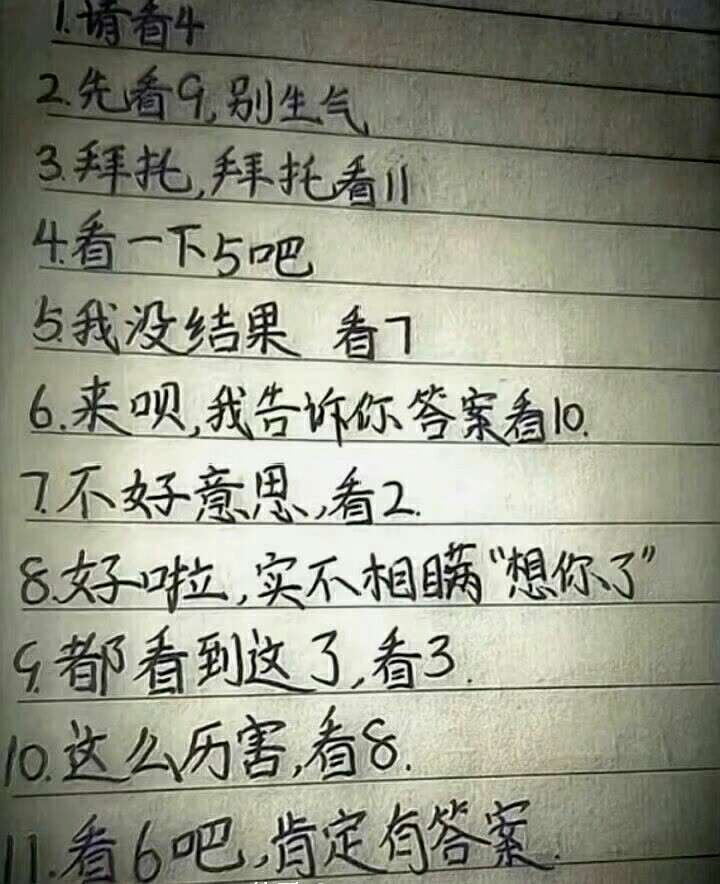 1.请看4
2.先看9,别生气
3.拜托,拜托看11
4.看一下5吧
5.我没结果 看7
6.来呗,我告诉你答案看10.
7.不好意思,看2.
8.好啦,实不相瞒“想你了”
9.都看到这了,看3.
10.这么厉害,看8.
11.看6吧,肯定有答案.